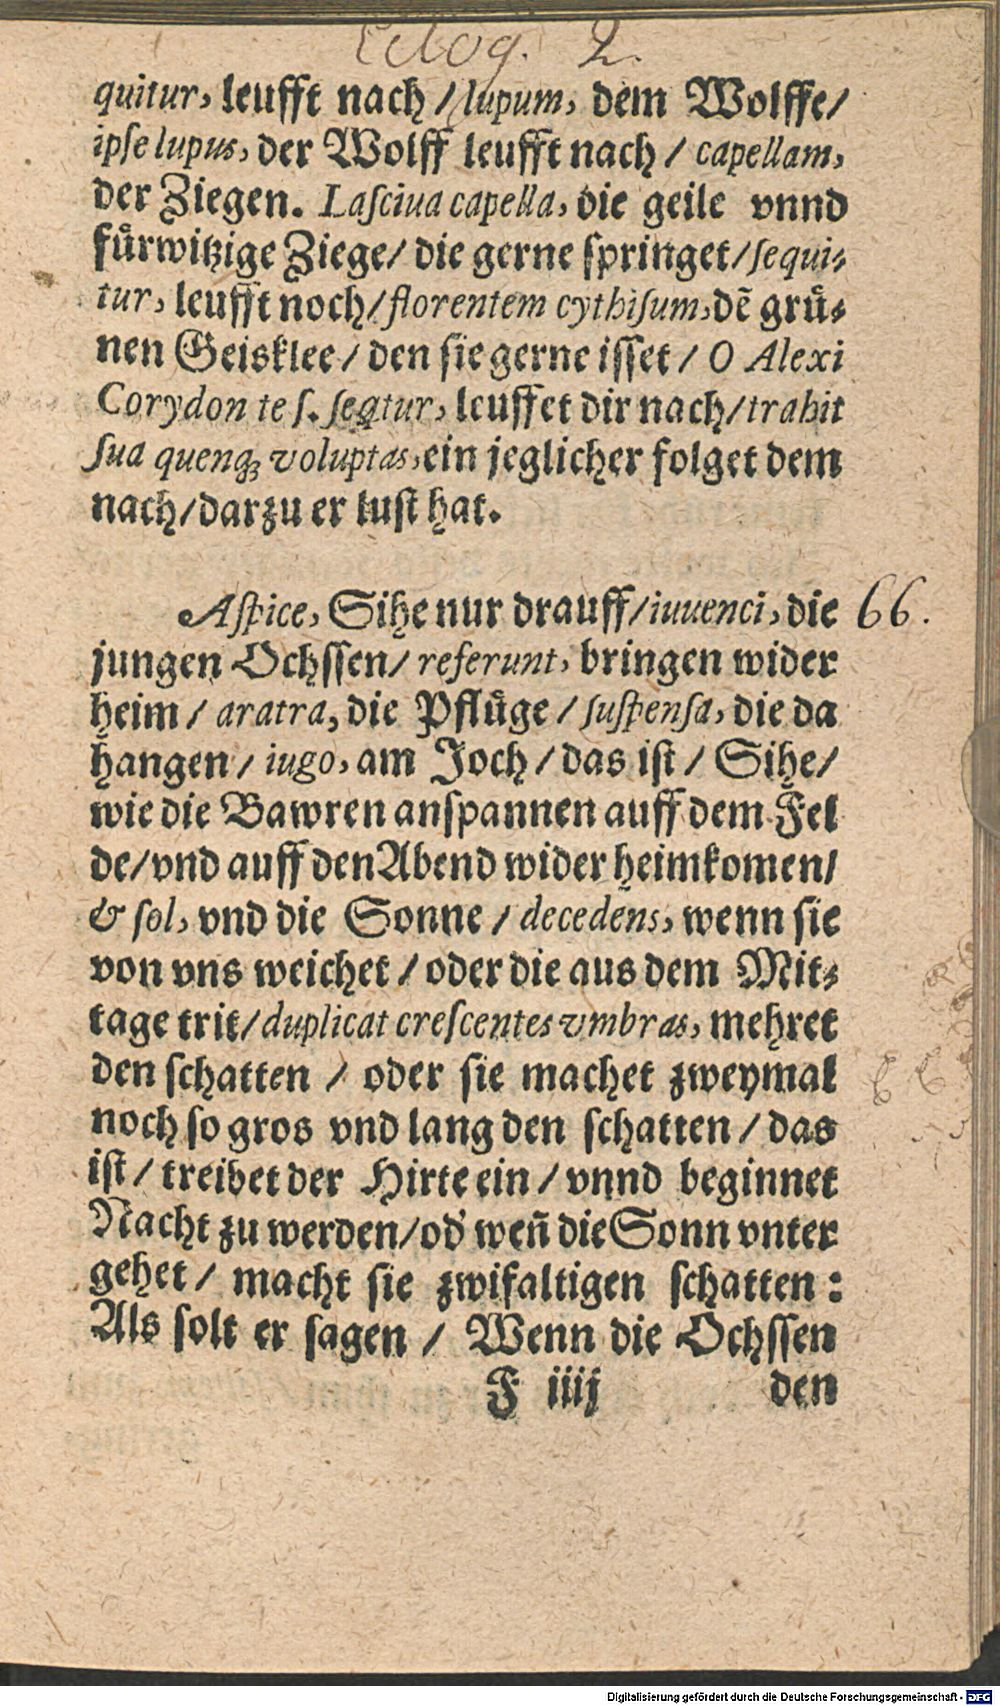 Eclog. 2.
quitur, leufft nach / lupum, dem Wolffe/
ipſe lupus, der Wolff leufft nach / capellam,
der Ziegen. Laſciua capella, die geile vnnd
fuͤrwitzige Ziege/ die gerne ſpringet/ſequi⸗
tur, leufft noch/florentem cythiſum,dẽ gruͤ⸗
nen Geisklee/ den ſie gerne iſſet / O Alexi
Corydon te ſ. ſeqtur, leuffet dir nach/trahit
ſua quenq; voluptas,ein jeglicher folget dem
nach/darzu er luſt hat.
Aſpice, Sihe nur drauff/iuuenci, die 66.
jungen Ochſſen/ referunt, bringen wider
heim / aratra, die Pfluͤge / ſuſpenſa, die da
hangen / iugo, am Joch / das iſt / Sihe/
wie die Bawren anſpannen auff dem Fel
de/vnd auff den Abend wider heimkomen/
& ſol, vnd die Sonne / decedens, wenn ſie
von vns weichet / oder die aus dem Mit⸗
tage trit/duplicat creſcentes vmbras, mehret
den ſchatten / oder ſie machet zweymal
noch ſo gros vnd lang den ſchatten / das
iſt / treibet der Hirte ein / vnnd beginnet
Nacht zu werden/od' weñ die Sonn vnter
gehet / macht ſie zwifaltigen ſchatten :
Als ſolt er ſagen / Wenn die Ochſſen
F iiij den
Digitalisierung gefördert durch die Deutsche Forschungsgemeinschaft - DFG